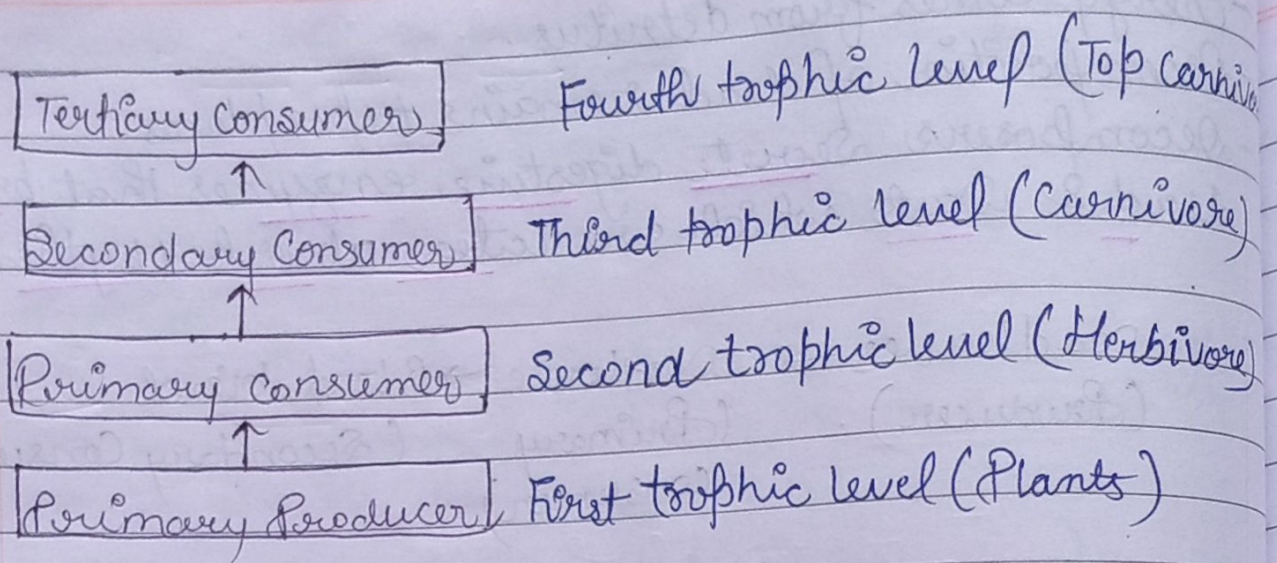 Tertiary Consumer Fourth trophic level (Top Carnivo
Secondary Consumer Third trophic level (Carnivore)
Primary Consumer Second trophic level (Herbivore)
Primary Producer First trophic level (Plants)